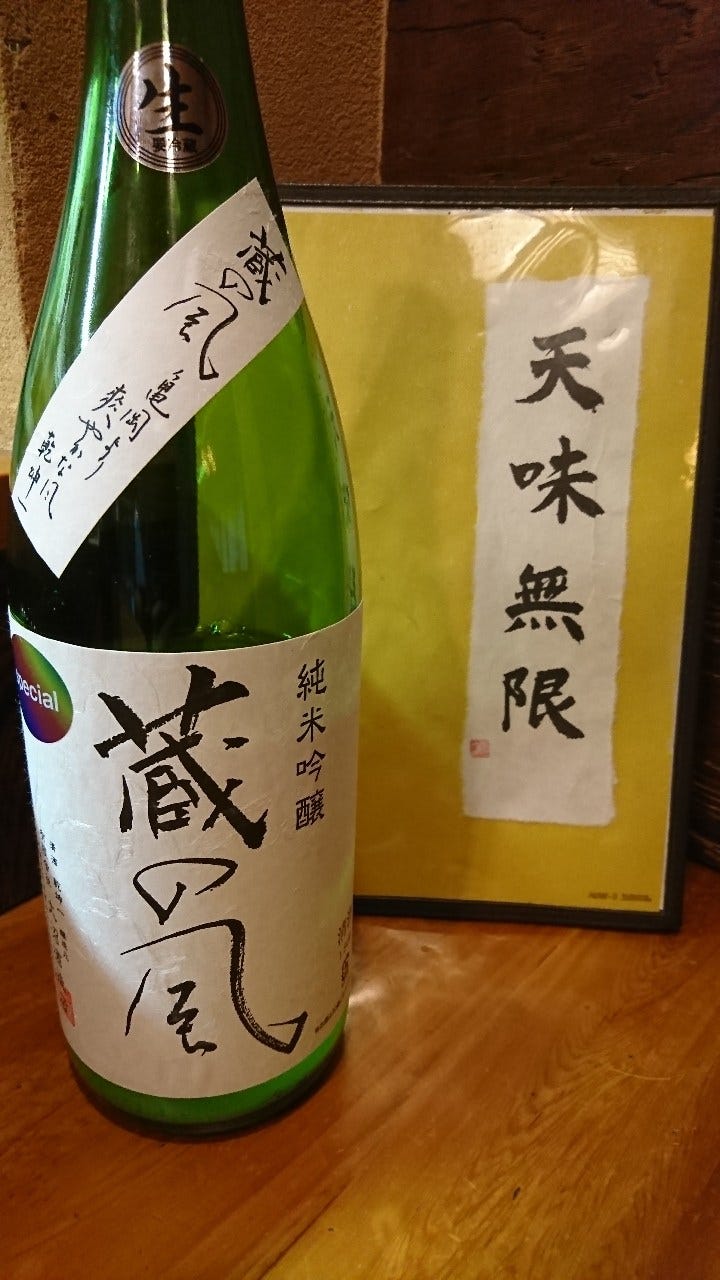 生
要冷蔵
蔵の風
亀岡より
爽やかな風
乾坤一
special
純米吟醸
蔵の風
天味無限